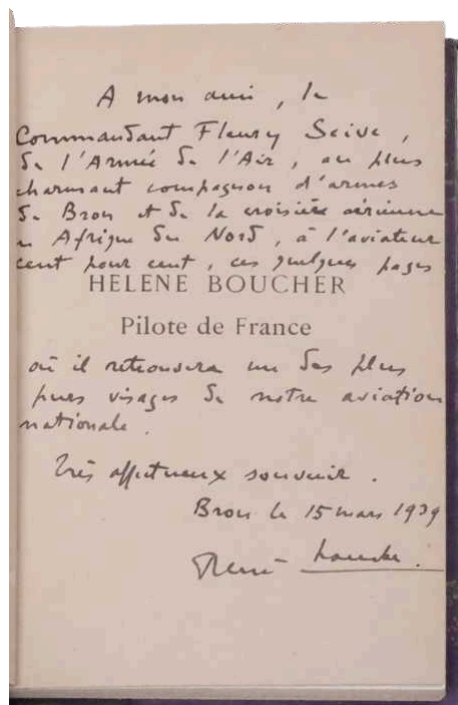 A mon ami, le
Commandant Fleury Seive,
de l'Armée de l'Air, au plus
charmant compagnon d'armes
de Bron et de la croisière aérienne
en Afrique du Nord, à l'aviateur
cent pour cent, ces quelques pages
HELENE BOUCHER
Pilote de France
où il retrouvera un des plus
purs visages de notre aviation
nationale.
Très affectueux souvenir.
Bron le 15 mars 1939
René